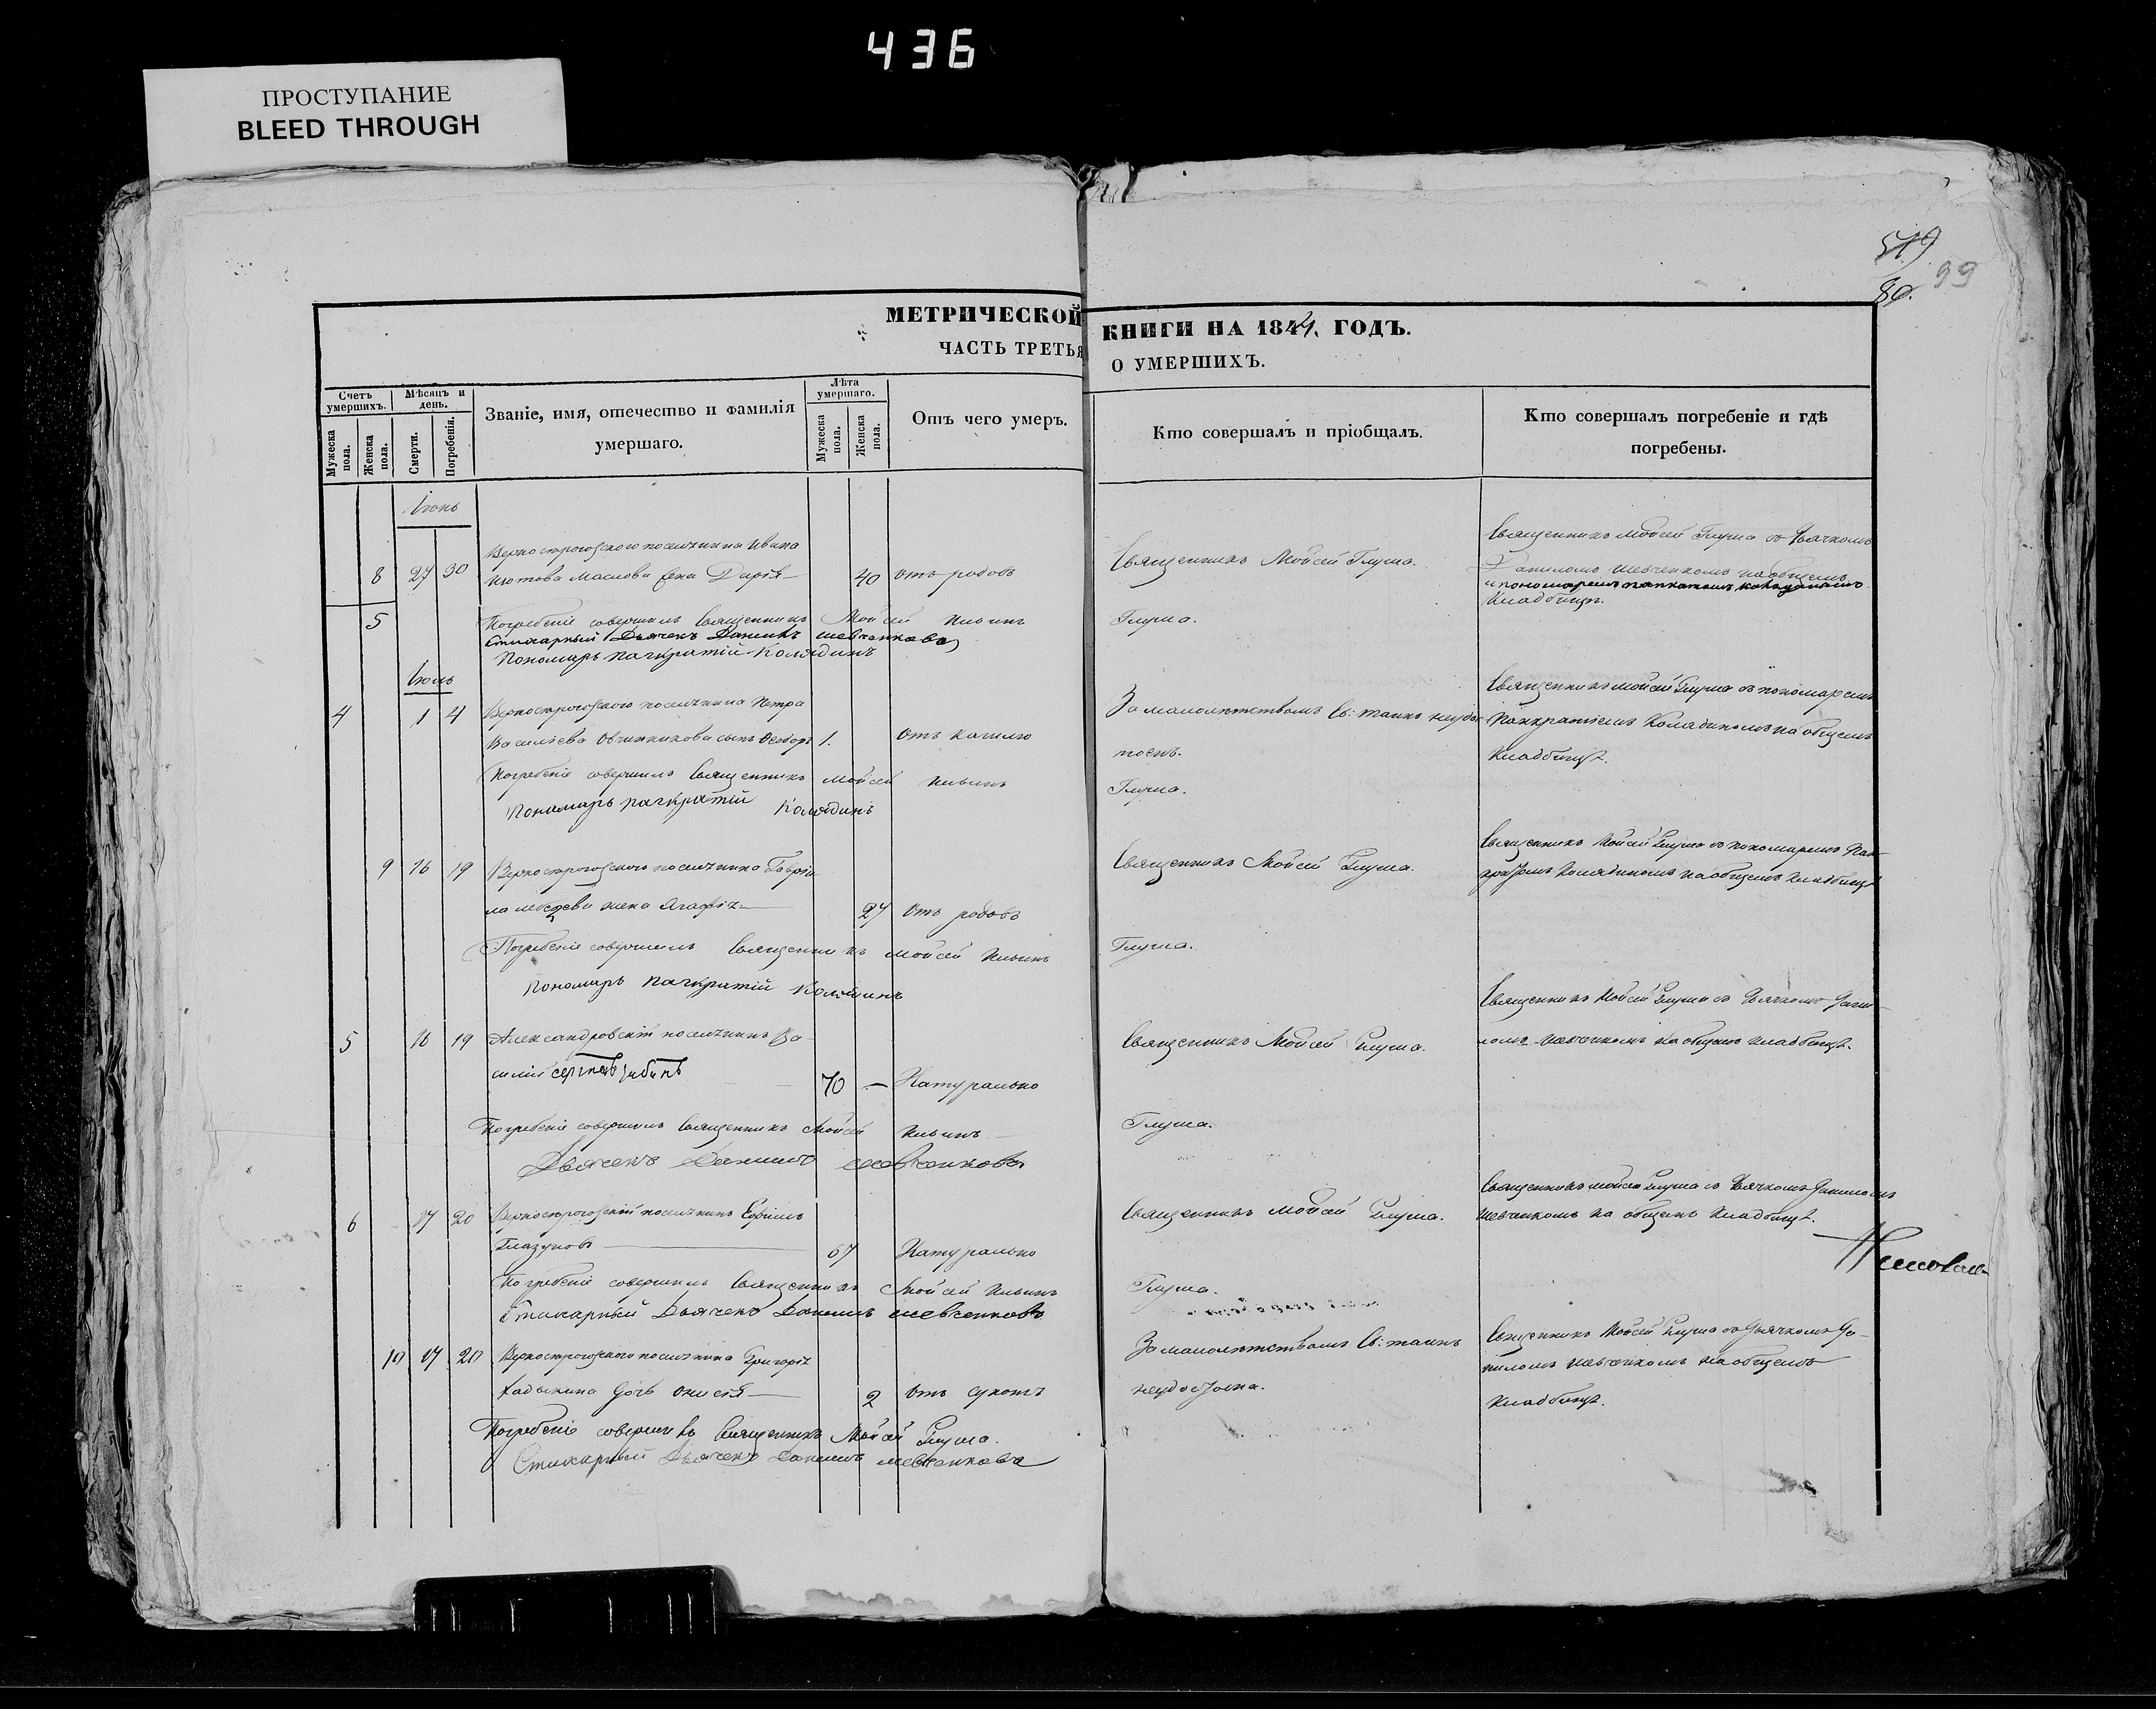 436
ПРОСТУПАНИЕ
BLEED THROUGH
99
80.
МЕТРИЧЕСКОЙ КНИГИ НА 1844. ГОДЪ.
ЧАСТЬ ТРЕТЬЯ О УМЕРШИХЪ.
Счетъ умершихъ.
Мужеска пола.
Женска пола.
Мѣсяцъ и день.
Смерти.
Погребенія.
Званіе, имя, отечество и фамилія умершаго.
Лѣта умершаго.
Мужеска пола.
Женска пола.
Отъ чего умеръ.
Кто совершалъ и пріобщалъ.
Кто совершалъ погребеніе и гдѣ погребены.
Іюнь
Верхнерогозского поселянина Ивана
8 27 30 Маслова жена Дарія 40 отъ родовъ
Священникъ Мойсей Глума.
Священникъ Мойсей Глума съ дьячкомъ
Даниломъ Шевченкомъ на общемъ
кладбищѣ.
5 Погребеніе совершилъ Священникъ Мойсей Ильинъ Глума.
Стихарный Дьячекъ Данилъ Шевченковъ
Пономарь Панкратій Колядинъ
Іюль
4 1 4 поселянина Петра
Васильева Овчинникова сынъ Ѳеодоръ 1. отъ кашлю
За малолѣтствомъ Св: таинъ неудостоенъ.
Священникъ Мойсей Глума съ пономаремъ
Панкратіемъ Колядиномъ на общемъ
кладбищѣ.
Погребеніе совершилъ Священникъ Мойсей Ильинъ Глума.
Пономарь Панкратій Колядинъ
9 16 19 поселянина Гавріила
жена Агафія 27 отъ родовъ
Священникъ Мойсей Глума.
Священникъ Мойсей Глума съ пономаремъ
Колядиномъ на общемъ кладбищѣ
Погребеніе совершилъ Священникъ Мойсей Ильинъ Глума.
Пономарь Панкратій Колядинъ
5 16 19 Александровскій поселянинъ Василій
Сергѣевъ 70 — Натурально
Священникъ Мойсей Глума.
Священникъ Мойсей Глума съ дьячкомъ Даниломъ
Шевченкомъ на общемъ кладбищѣ.
Погребеніе совершилъ Священникъ Мойсей Ильинъ Глума.
Дьячекъ Данилъ Шевченковъ
6 17 20 поселянинъ Ефимъ
Глазуновъ 67 Натурально
Священникъ Мойсей Глума.
Священникъ Мойсей Глума съ дьячкомъ Даниломъ
Шевченкомъ на общемъ кладбищѣ.
Погребеніе совершилъ Священникъ Мойсей Ильинъ Глума.
Стихарный Дьячекъ Данилъ Шевченковъ
10 17 20 поселянина Григорія
дочь 2 отъ сухотъ
За малолѣтствомъ Св: таинъ
неудостоена.
Священникъ Мойсей Глума съ дьячкомъ Даниломъ
Шевченкомъ на общемъ
кладбищѣ.
Погребеніе совершилъ Священникъ Мойсей Глума.
Стихарный Дьячекъ Данилъ Шевченковъ